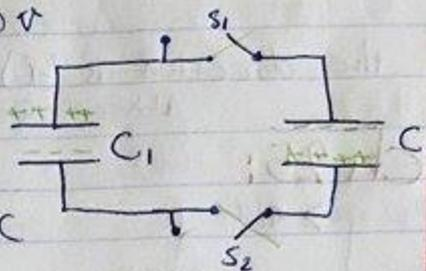 0 V
S1
++ ++
--- C1
C
++ ++
C
S2